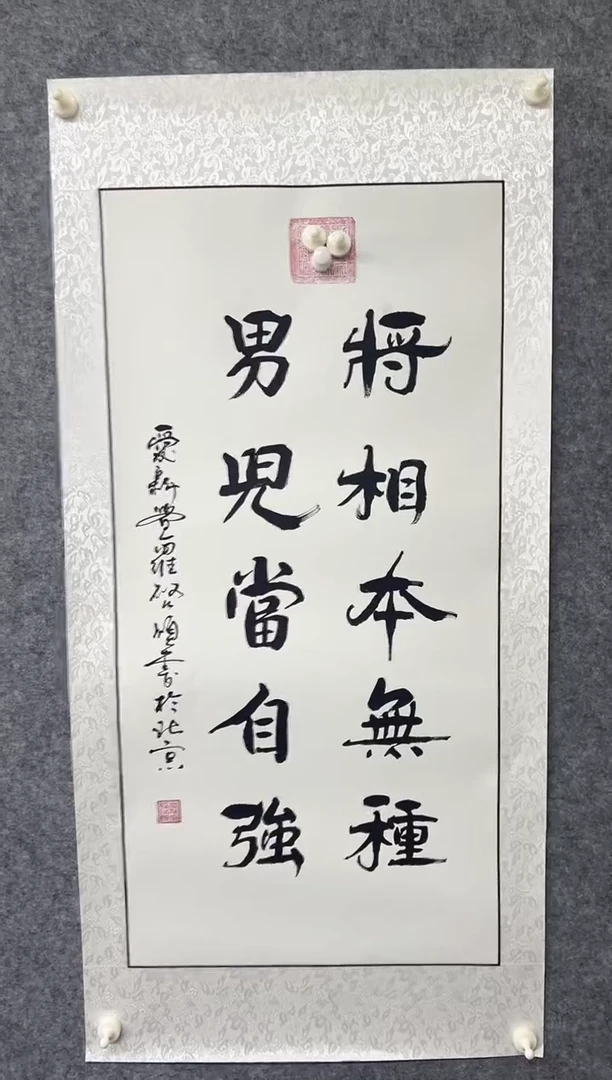 將相本無種
男兒當自強
愛新覺羅啓順書於北京